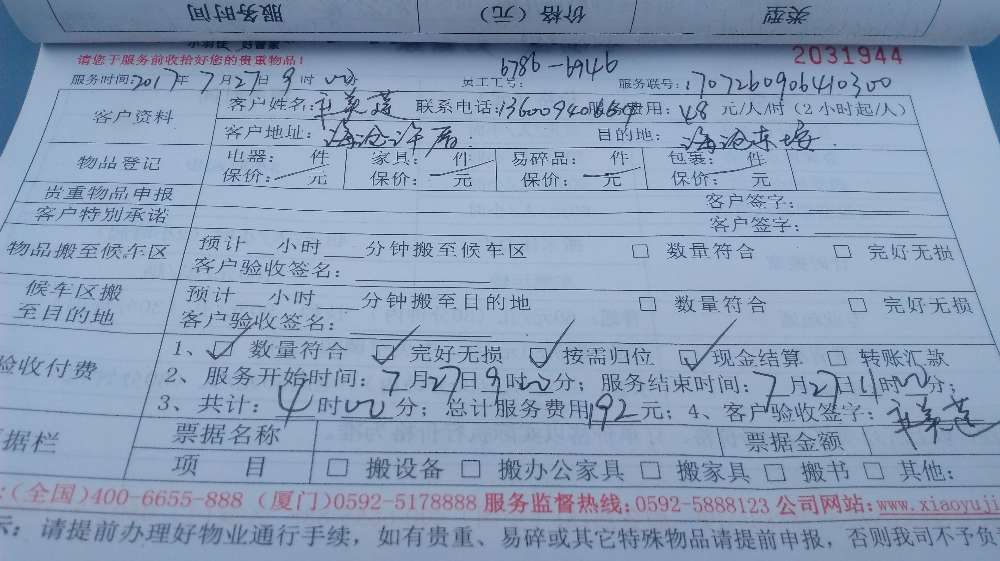 类型 价格（元） 服务时间
请您于服务前收拾好您的贵重物品！ 2031944
服务时间：2017年7月27日9时00分 员工工号：6786-6946 服务联号：170726090641 0300
客户资料 客户姓名：王美莲 联系电话：13600940664 服务费用：48元/人/时（2小时起/人）
客户地址：海沧许厝 目的地：海沧东埭
物品登记 电器： 件 家具： 件 易碎品： 件 包裹： 件
保价： 元 保价： 元 保价： 元 保价： 元
贵重物品申报 客户签字：
客户特别承诺 客户签字：
物品搬至候车区 预计 小时 分钟搬至候车区 □ 数量符合 □ 完好无损
客户验收签名：
候车区搬至目的地 预计 小时 分钟搬至目的地 □ 数量符合 □ 完好无损
客户验收签名：
验收付费 1、☑ 数量符合 ☑ 完好无损 ☑ 按需归位 ☑ 现金结算 □ 转账汇款
2、服务开始时间：7月27日9时00分；服务结束时间：7月27日11时00分；
3、共计：4时00分；总计服务费用192元；4、客户验收签字：王美莲
据栏 票据名称 票据金额
项 目 □ 搬设备 □ 搬办公家具 □ 搬家具 □ 搬书 □ 其他：
：（全国）400-6655-888（厦门）0592-5178888 服务监督热线：0592-5888123 公司网站：www.xiaoyuji
示：请提前办理好物业通行手续，如有贵重、易碎或其它特殊物品请提前申报，否则我司不予负